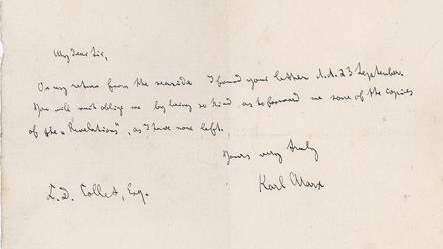 My dear Sir,
On my return from the seaside I found your letter d.d. 23 September.
You will much oblige me by being so kind as to forward me some of the copies
of the "Revelations", as I have none left.
Yours very truly
Karl Marx
C. D. Collet, Esq.